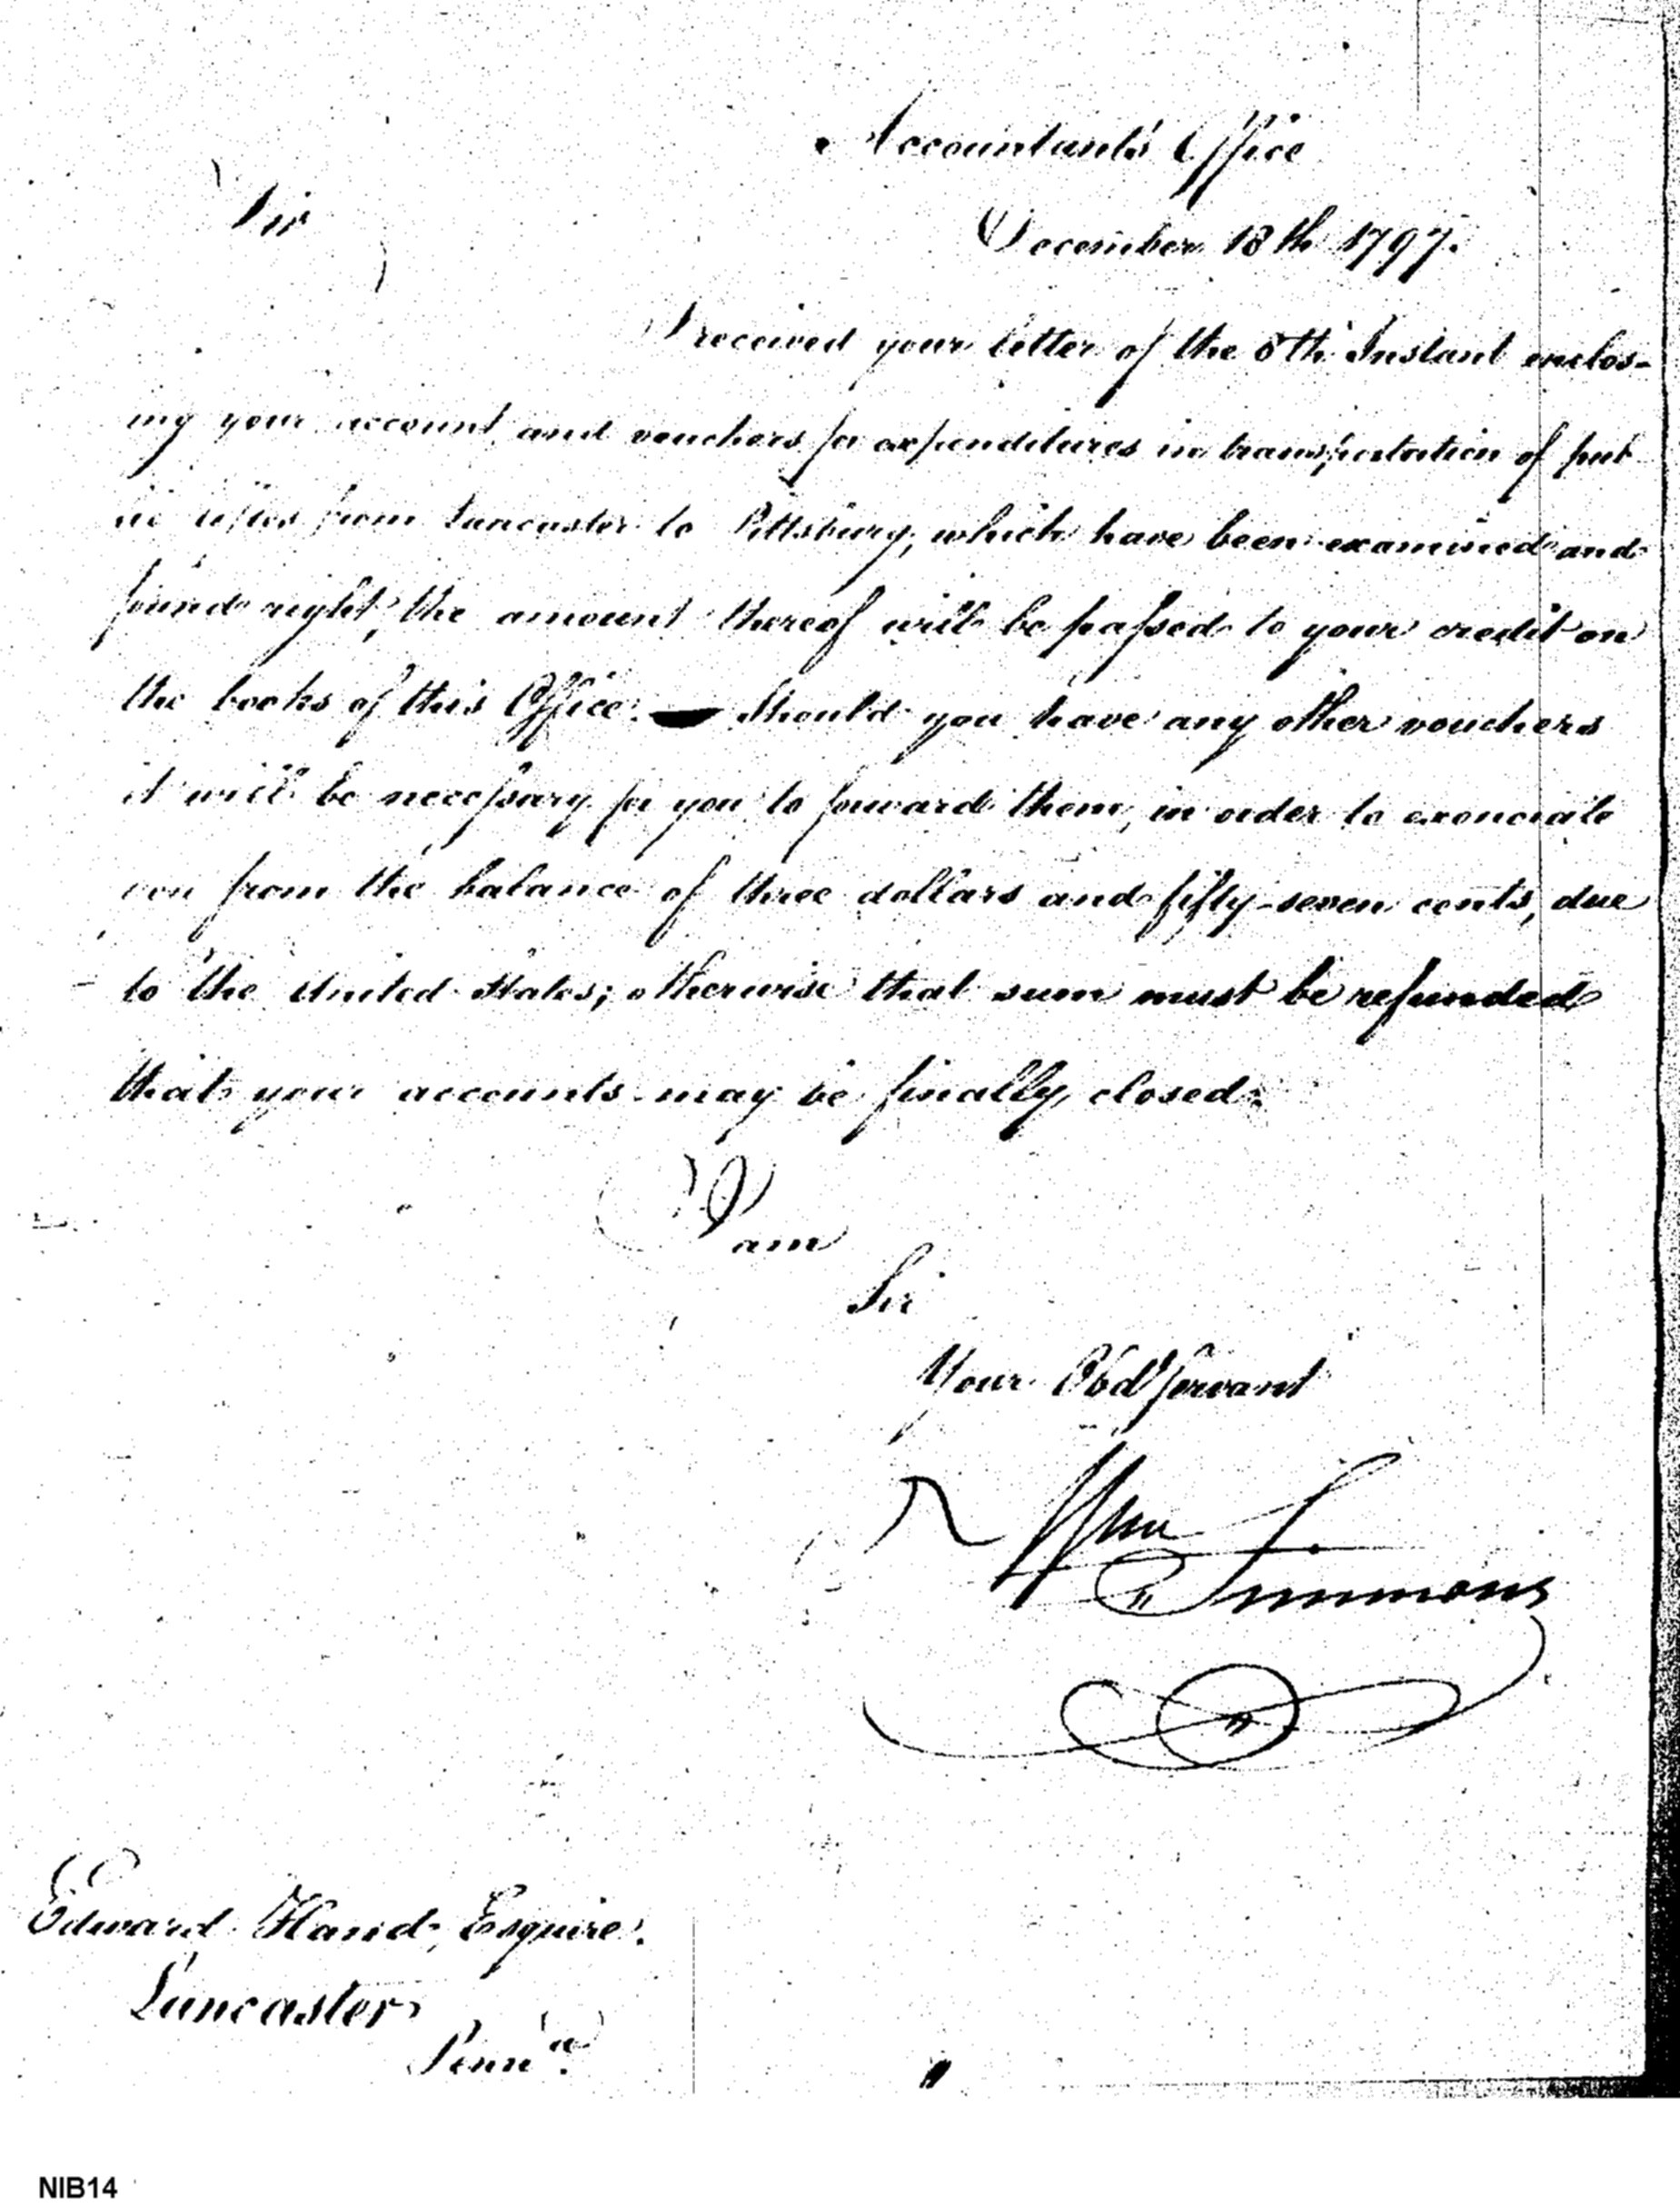 Accountant's Office
Sir
December 18th 1797.
I received your letter of the 8th Instant enclos-
ing your account and vouchers for expenditures in transportation of pub
lic from Lancaster to Pittsburg, which have been examined and
found right, the amount thereof will be passed to your credit on
the books of this Office. — Should you have any other vouchers
it will be necessary for you to forward them, in order to exonerate
you from the balance of three dollars and fifty-seven cents, due
to the United States; otherwise that sum must be refunded
that your accounts may be finally closed.
I am
Sir
Your Obd Servant
Wm Simmons
Edward Hand, Esquire.
Lancaster
Penna.
NIB14